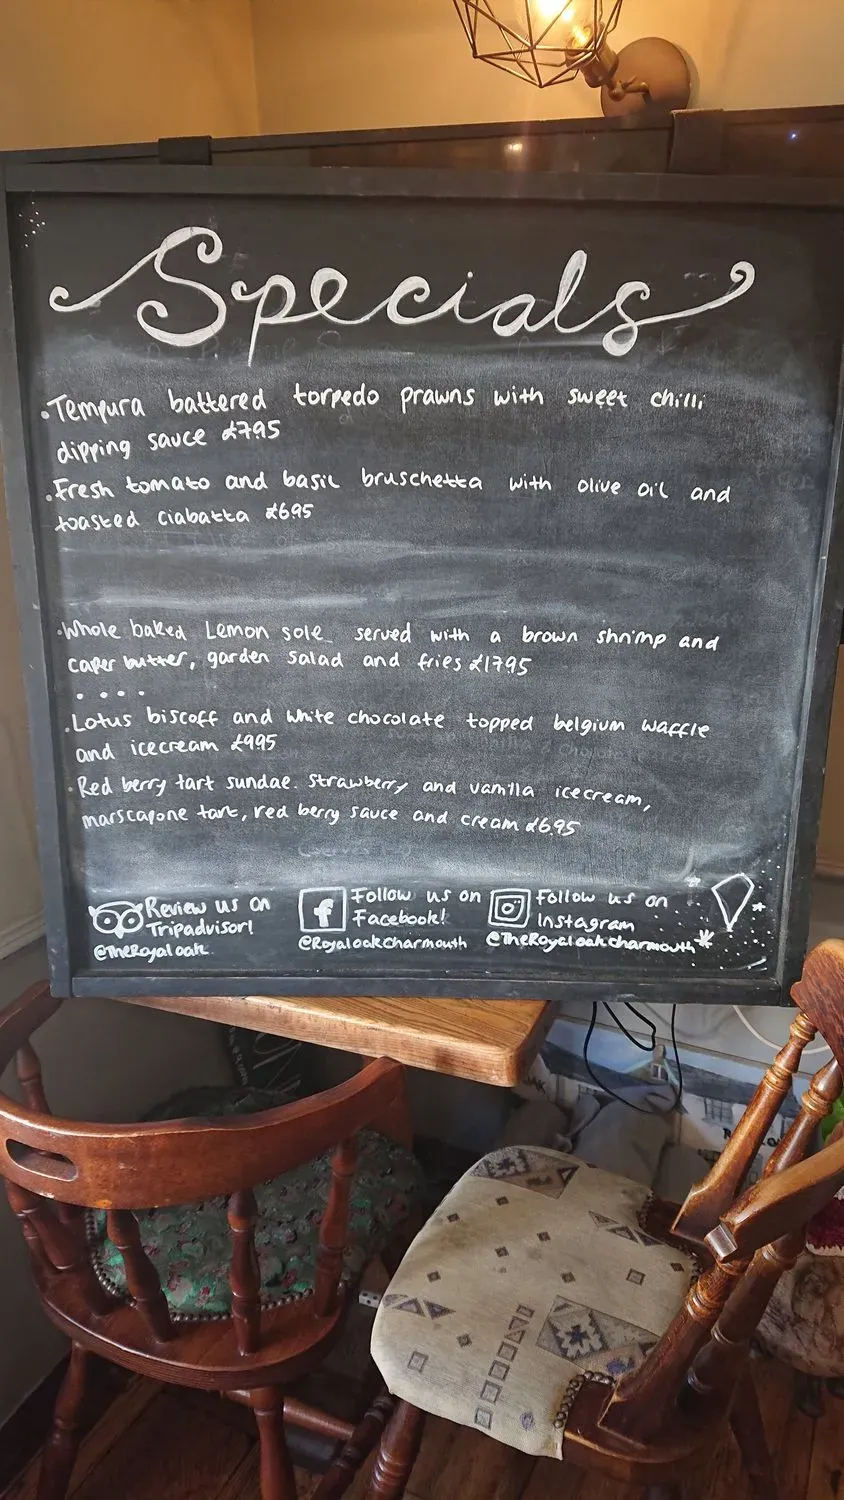 Specials
• Tempura battered torpedo prawns with sweet chilli
dipping sauce £7.95
• Fresh tomato and basil bruschetta with olive oil and
toasted ciabatta £6.95
• Whole baked Lemon sole served with a brown shrimp and
caper butter, garden salad and fries £17.95
• • • •
• Lotus biscoff and white chocolate topped belgium waffle
and icecream £9.95
• Red berry tart sundae. Strawberry and vanilla icecream,
marscapone tart, red berry sauce and cream £6.95
Review us on
Tripadvisor!
@TheRoyaloak
Follow us on
Facebook!
@Royaloakcharmouth
Follow us on
Instagram
@TheRoyaloakcharmouth